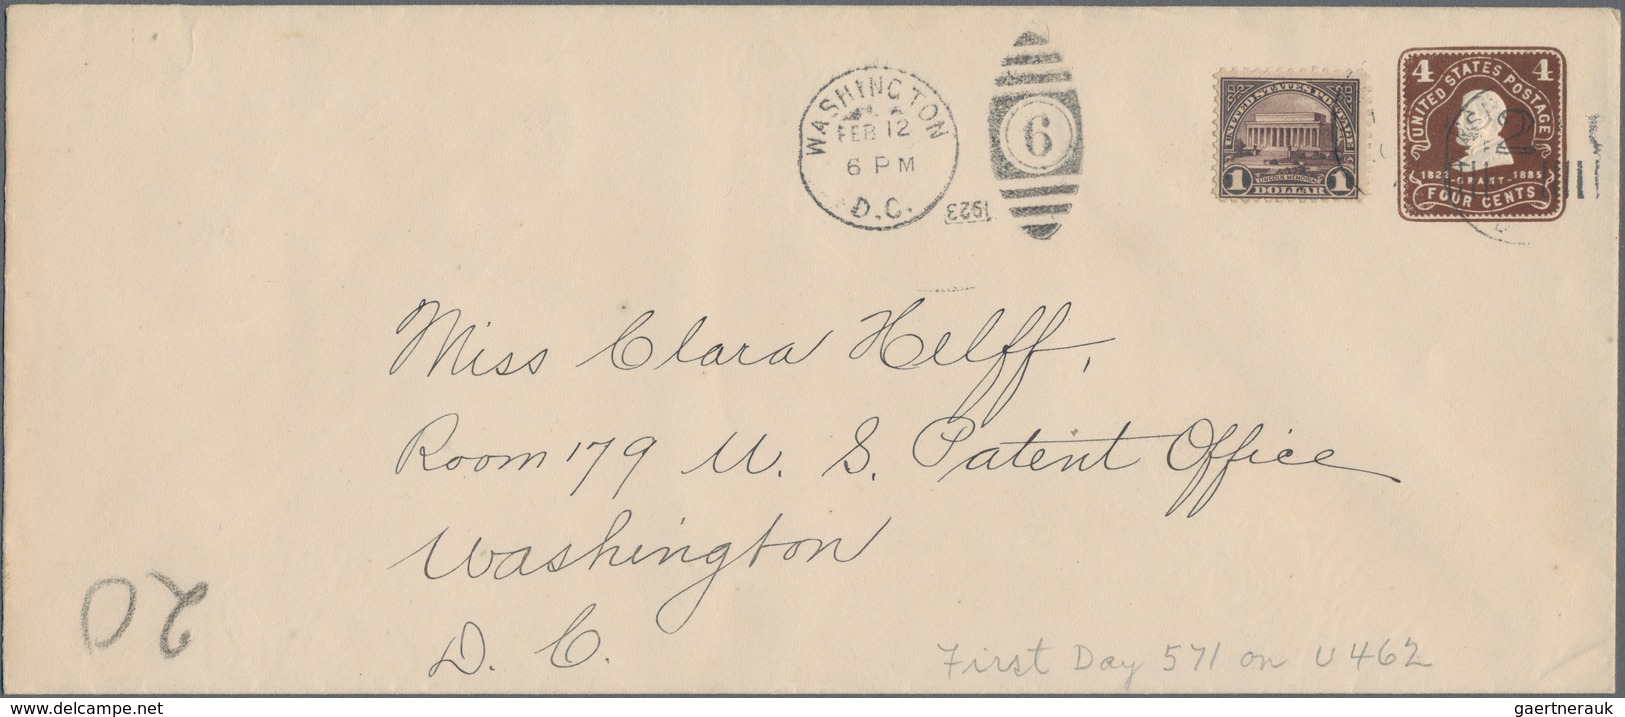 WASHINGTON
FEB 12
6 PM
D.C.
1923
6
UNITED STATES POSTAGE
LINCOLN MEMORIAL
1 DOLLAR 1
4 4
UNITED STATES POSTAGE
GRANT - 1885
FOUR CENTS
Miss Clara Helff,
Room 179 U. S. Patent Office
Washington
D. C.
20
First Day 571 on U462
delcampe.net
gaertnerauk